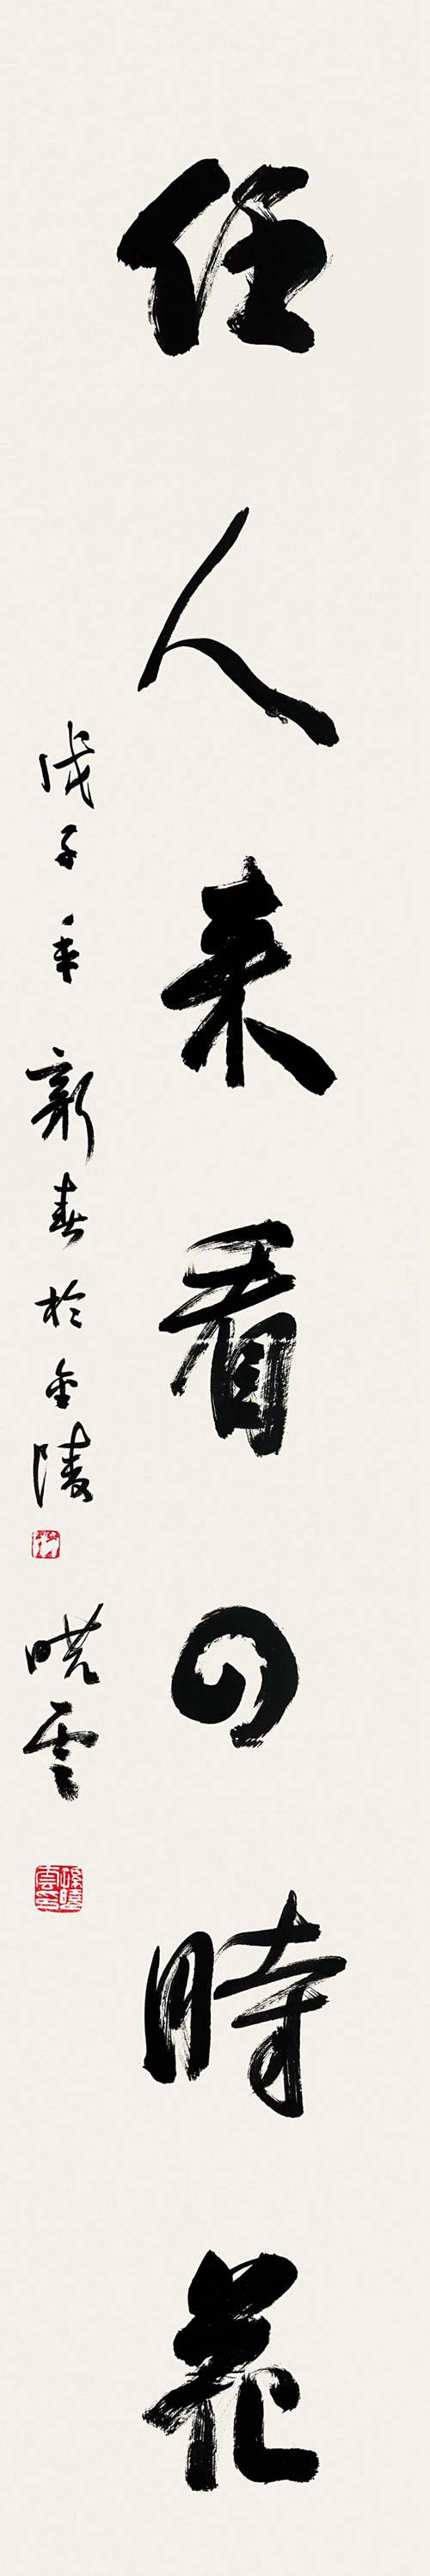 任人来看四時花
戊子年新春於金陵
曉雲
孫曉雲印